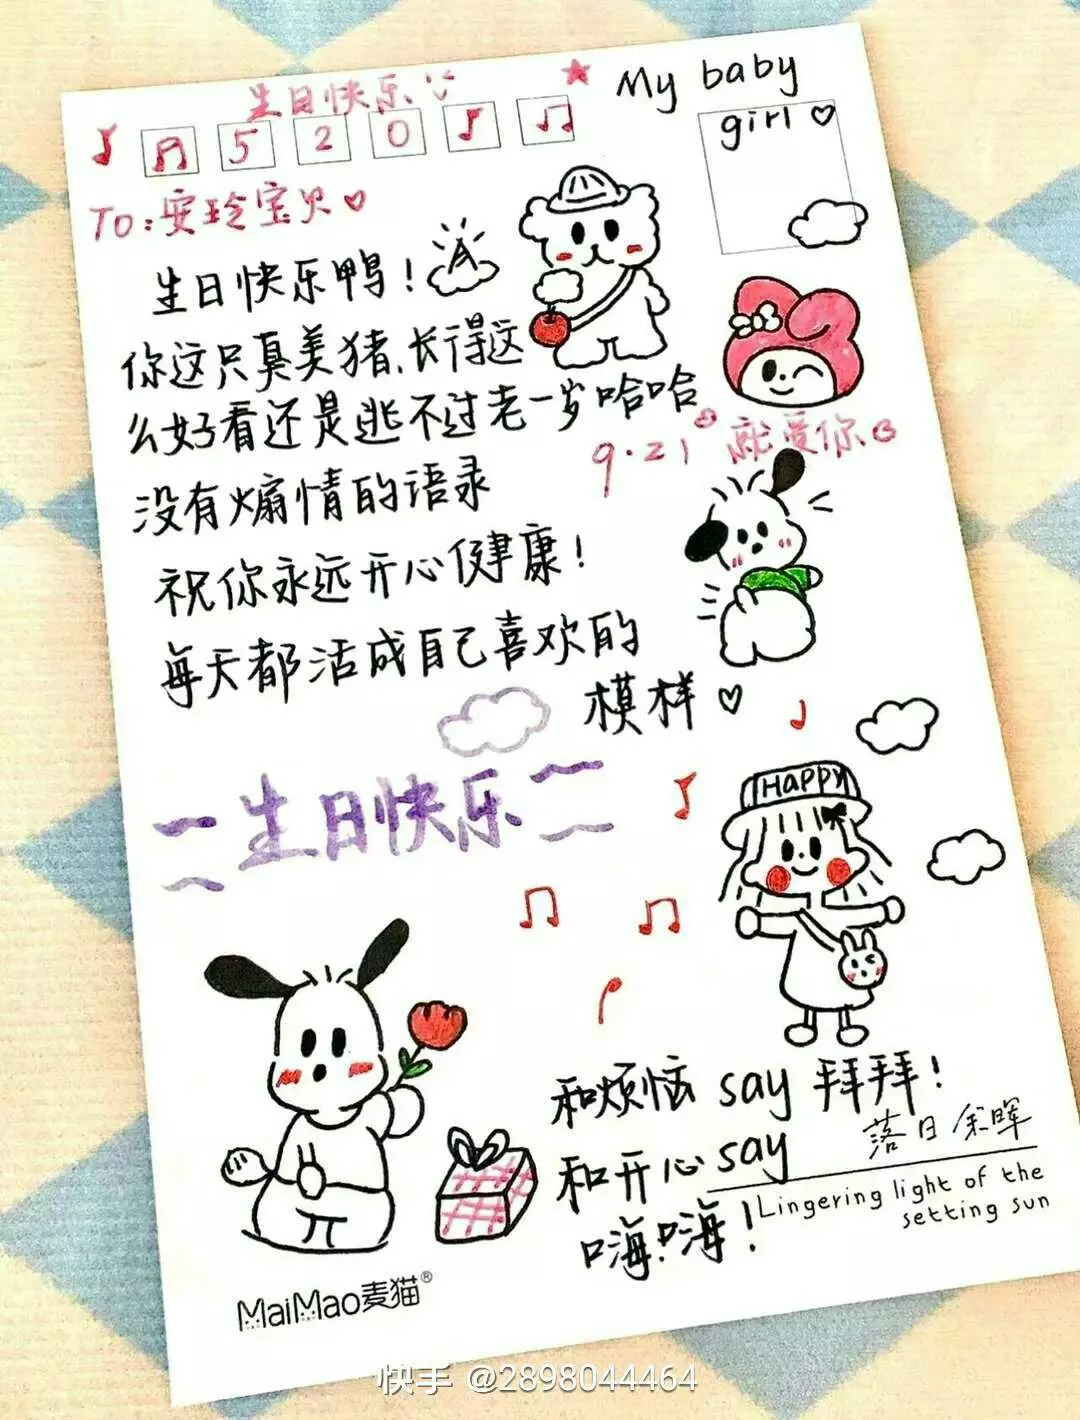 生日快乐
My baby
girl
5 2 0
TO:安玲宝贝
生日快乐鸭!
你这只真美猪、长得这
么好看还是逃不过老一岁哈哈
9·21 就爱你
没有煽情的语录
祝你永远开心健康!
每天都活成自己喜欢的
模样
生日快乐
HAPPY
和烦恼 say 拜拜!
落日余晖
和开心 say
Lingering light of the
setting sun
嗨!嗨!
MaiMao麦猫®
快手 @2898044464